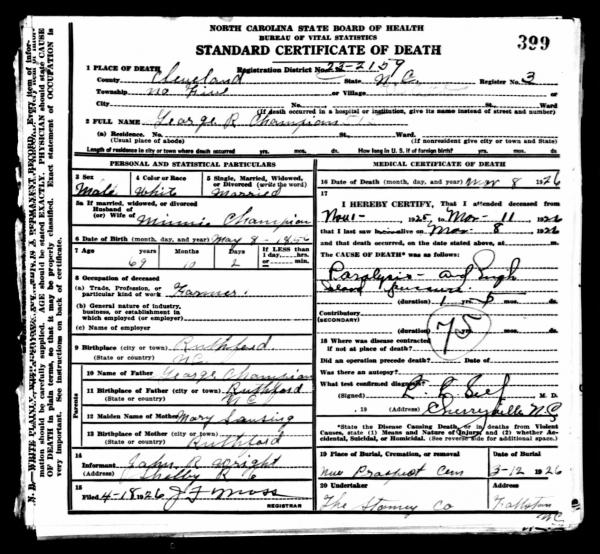 NORTH CAROLINA STATE BOARD OF HEALTH
BUREAU OF VITAL STATISTICS
STANDARD CERTIFICATE OF DEATH
399
1 PLACE OF DEATH
Registration District No. 23-2159
County Cleveland State N.C. Register No. 3
Township No Five or Village
City No. St., Ward
(If death occurred in a hospital or institution, give its name instead of street and number)
2 FULL NAME George R Champion
(a) Residence. No. St., Ward
(Usual place of abode) (If nonresident give city or town and State)
Length of residence in city or town where death occurred yrs. mos. ds. How long in U. S. if of foreign birth? yrs. mos. ds.
PERSONAL AND STATISTICAL PARTICULARS
3 Sex 4 Color or Race 5 Single, Married, Widowed, or Divorced (write the word)
Male White Married
5a If married, widowed, or divorced
Husband of
(or) Wife of Minnie Champion
6 Date of Birth (month, day, and year) May 8 1856
7 Age Years Months Days If LESS than 1 day, hrs. or min.
69 10 2
8 Occupation of deceased
(a) Trade, Profession, or particular kind of work Farmer.
(b) General nature of industry, business, or establishment in which employed (or employer)
(c) Name of employer
9 Birthplace (city or town) Ruthford
(State or country) N.C.
Parents
10 Name of Father George Champion
11 Birthplace of Father (city or town) Ruthford
(State or country) N.C.
12 Maiden Name of Mother Mary
13 Birthplace of Mother (city or town)
(State or country) Ruthford
14
Informant John R Wright
(Address) Shelby R 6
15
Filed 4-18 1926 J F Moss
REGISTRAR
MEDICAL CERTIFICATE OF DEATH
16 Date of Death (month, day, and year) Mar 8 1926
17
I HEREBY CERTIFY, That I attended deceased from
Nov 1- 1925, to Mar- 11 1926
that I last saw him alive on Mar- 8 1926
and that death occurred, on the date stated above, at m.
The CAUSE OF DEATH* was as follows:
Paralysis - and High
Blood Pressure
(duration) 1 yrs. mos. ds.
Contributory
(SECONDARY)
75
(duration) yrs. mos. ds.
18 Where was disease contracted
if not at place of death?
Did an operation precede death? Date of
Was there an autopsy?
What test confirmed diagnosis?
(Signed) M. D.
, 19 (Address) Cherryville N.C.
*State the Disease Causing Death, or in deaths from Violent Causes, state (1) Means and Nature of Injury; and (2) whether Accidental, Suicidal, or Homicidal. (See reverse side for additional space.)
19 Place of Burial, Cremation, or removal Date of Burial
New Prospect Cem 3-12 1926
20 Undertaker Address
The Stamey Co Fallston
NC
N. B.—WRITE PLAINLY,
Every item of information should be carefully supplied. AGE should be stated EXACTLY. PHYSICIAN should state CAUSE OF DEATH in plain terms, so that it may be properly classified. Exact statement of OCCUPATION is very important. See instructions on back of certificate.